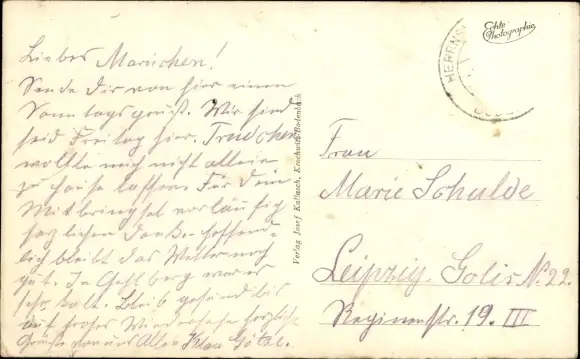 Liebes Mariechen!
Sende Dir von hier einen
Sonntagsgruß. Wir sind
seid Freitag hier. Trudchen
wollte mich nicht allein
zu Hause lassen. Für Dein
Mitbringsel vorläufig
herzlichen Dank. hoffend-
lich bleibt das Wetter noch
gut. In Gehlberg war es
sehr kalt. Bleib gesund bis
auf frohes Wiedersehn herzliche
Grüße von uns Allen Götze.
Verlag Josef Kallasch, Krochwitz-Bodenbach
HERRNS
Echte
Photographie
Frau
Marie Schulde
Leipzig-Golis N.22.
Regimenstr. 19. III